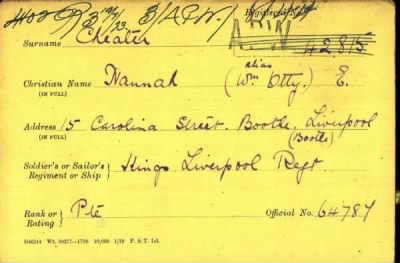 Registered No.
Surname Cheater 42815
Christian Name Hannah (Wm Otty.) E.
alias
(IN FULL)
Address 15 Carolina Street. Bootle. Liverpool
(IN FULL) (Bootle)
Soldier's or Sailor's Regiment or Ship } Kings Liverpool Regt
Rank or Rating } Pte Official No. 64787
D16214 Wt. 39277—1798 10,000 1/19 P. & T. Ltd.